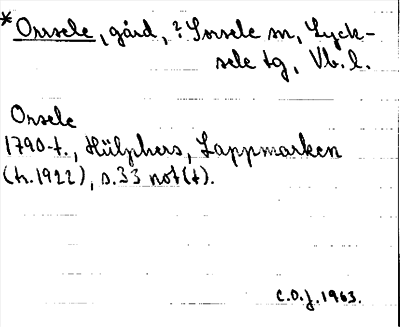 * Orrsele, gård, ? Sorsele sn, Lyck-
sele tg, Vb. l.
Orsele
1790-t., Hülphers, Lappmarken
(tr. 1922), s. 33 not (t).
C.O.J. 1963.